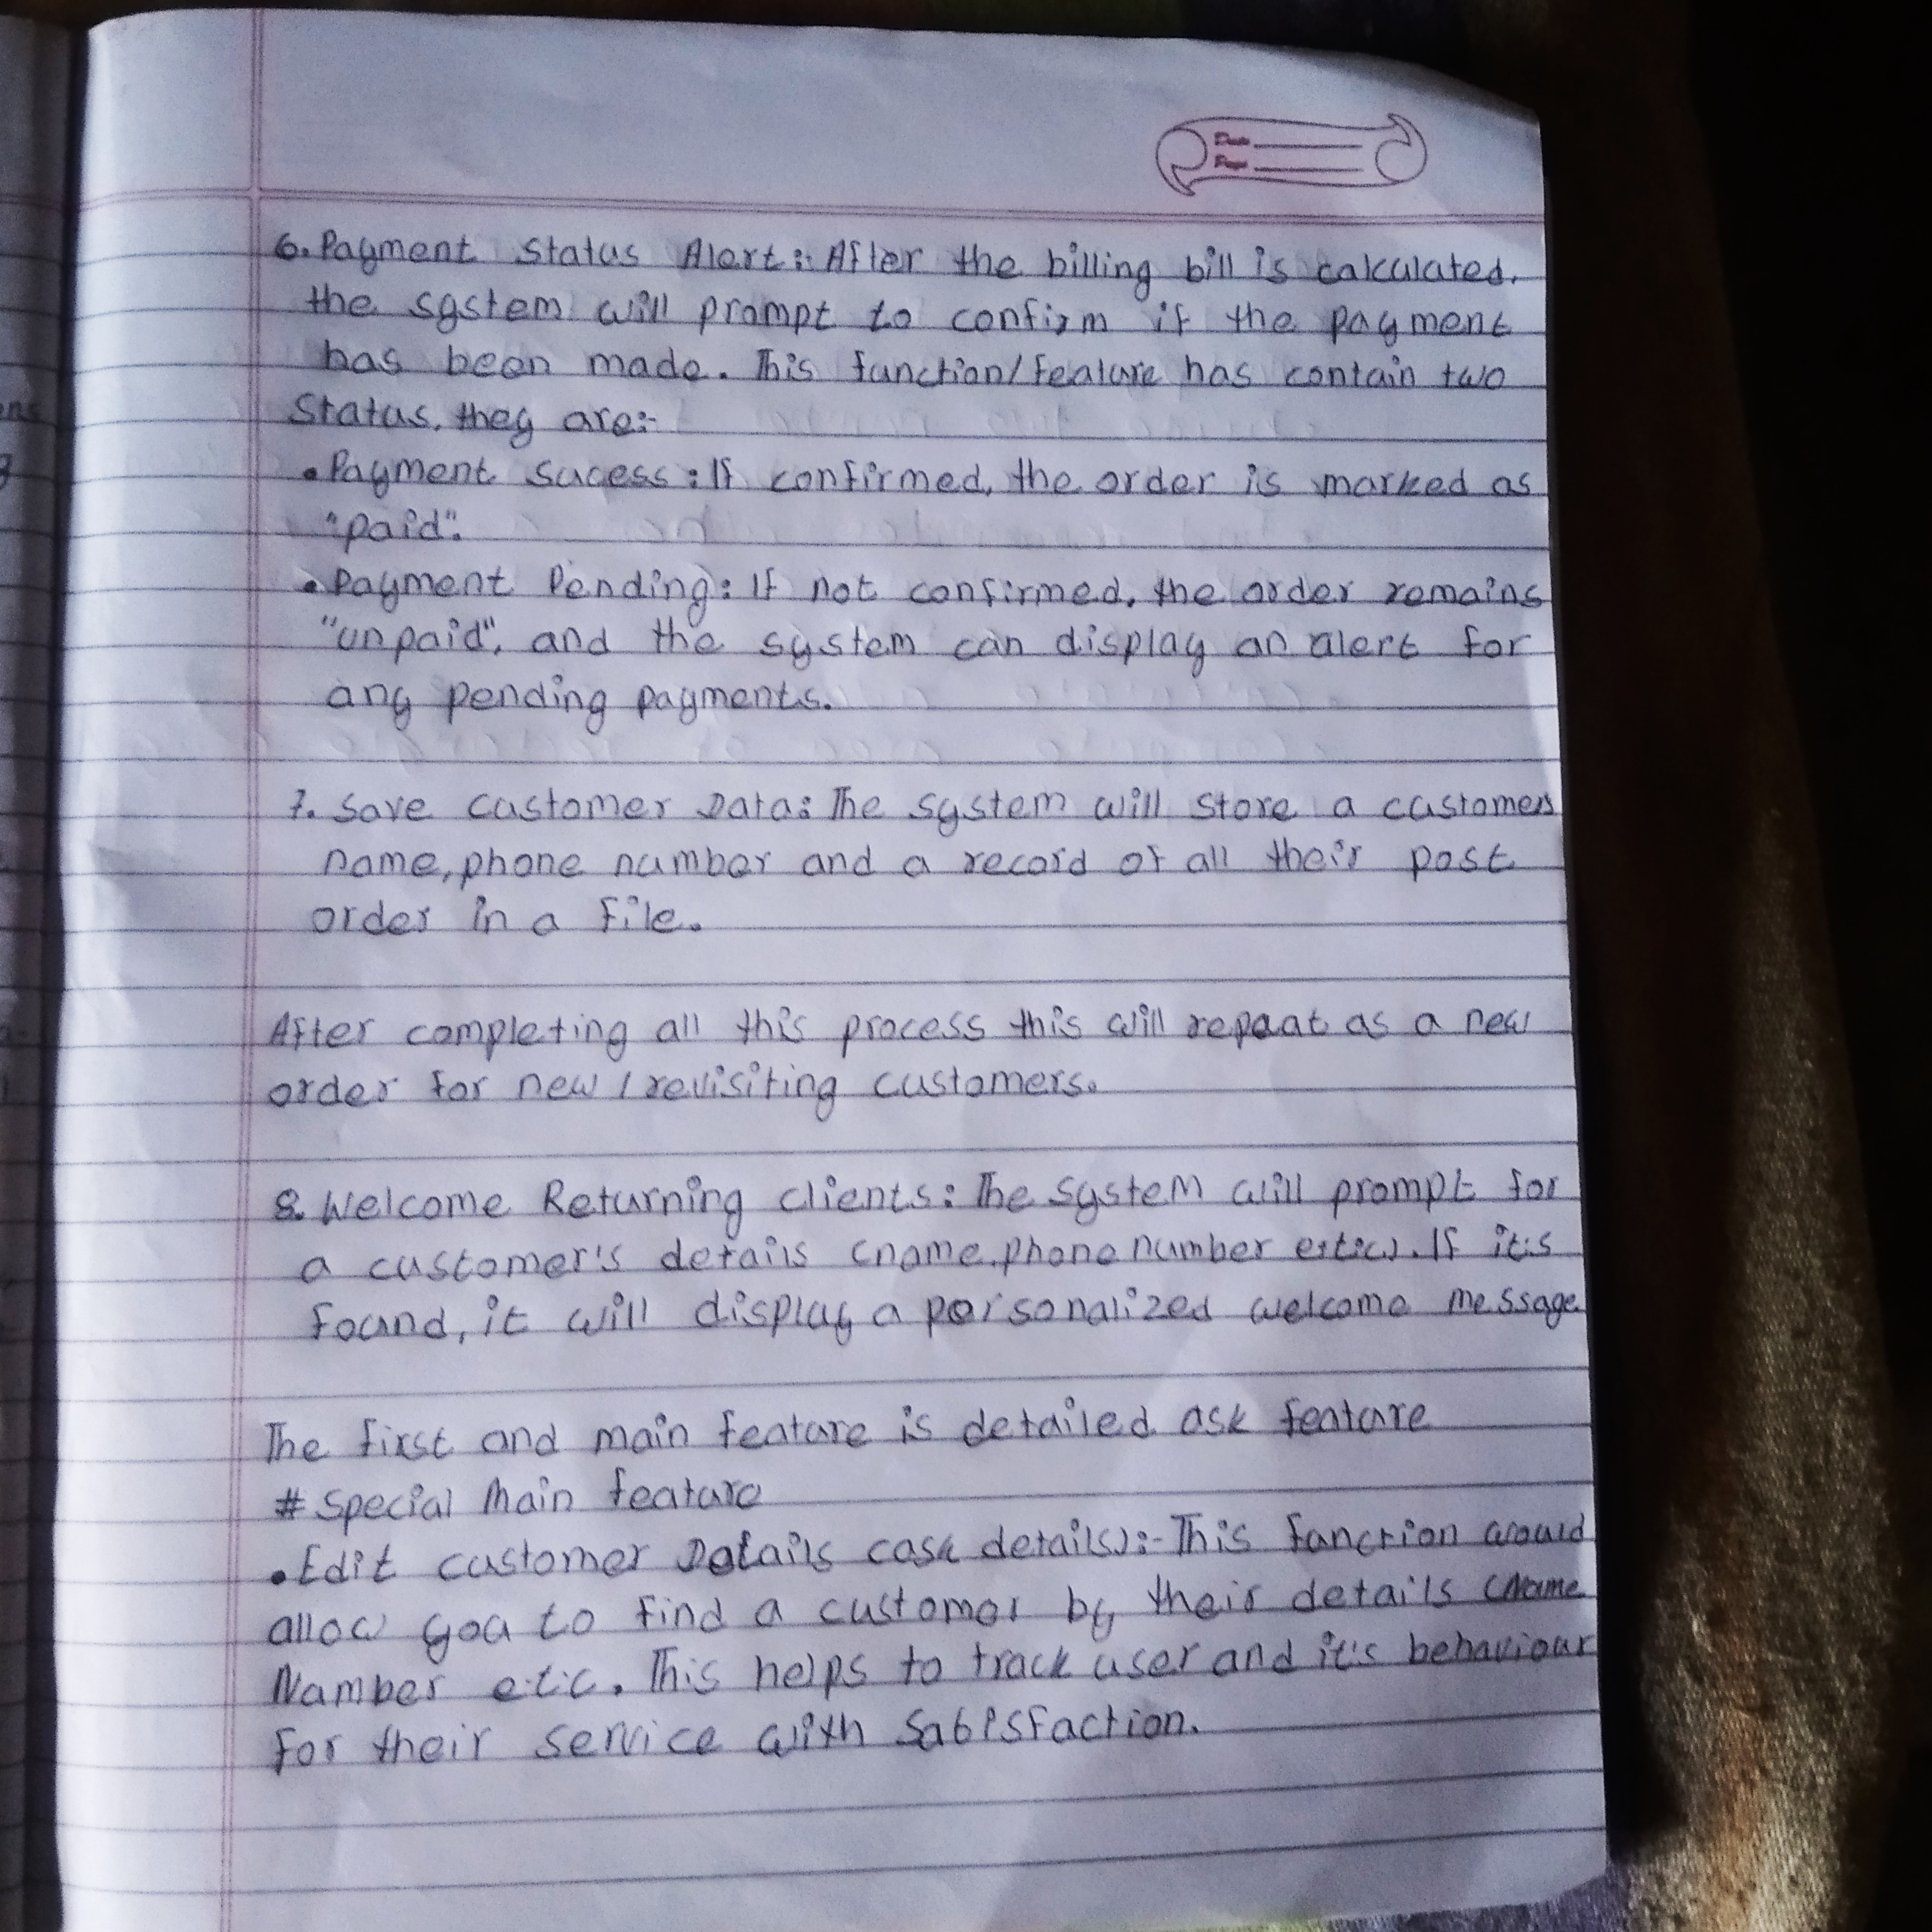 Date
Page
6. Payment Status Alert:- After the billing bill is calculated,
the system will prompt to confirm if the payment
has been made. This function/feature has contain two
Status, they are:-
• Payment Sucess : If confirmed, the order is marked as
"paid".
• Payment Pending : If not confirmed, the order remains
"unpaid", and the system can display an alert for
any pending payments.
7. Save Customer Data: The system will store a customers
name, phone number and a record of all their past
order in a file.
After completing all this process this will repeat as a new
order for new / revisiting customers.
8. Welcome Returning clients: The system will prompt for
a customer's details (name, phone number e.t.c). If it's
found, it will display a personalized welcome message
The first and main feature is detailed ask feature
# Special Main feature
• Edit customer Details (ask details):- This function would
allow you to find a customer by their details (Name
Number e.t.c. This helps to track user and it's behaviour
for their service with Satisfaction.